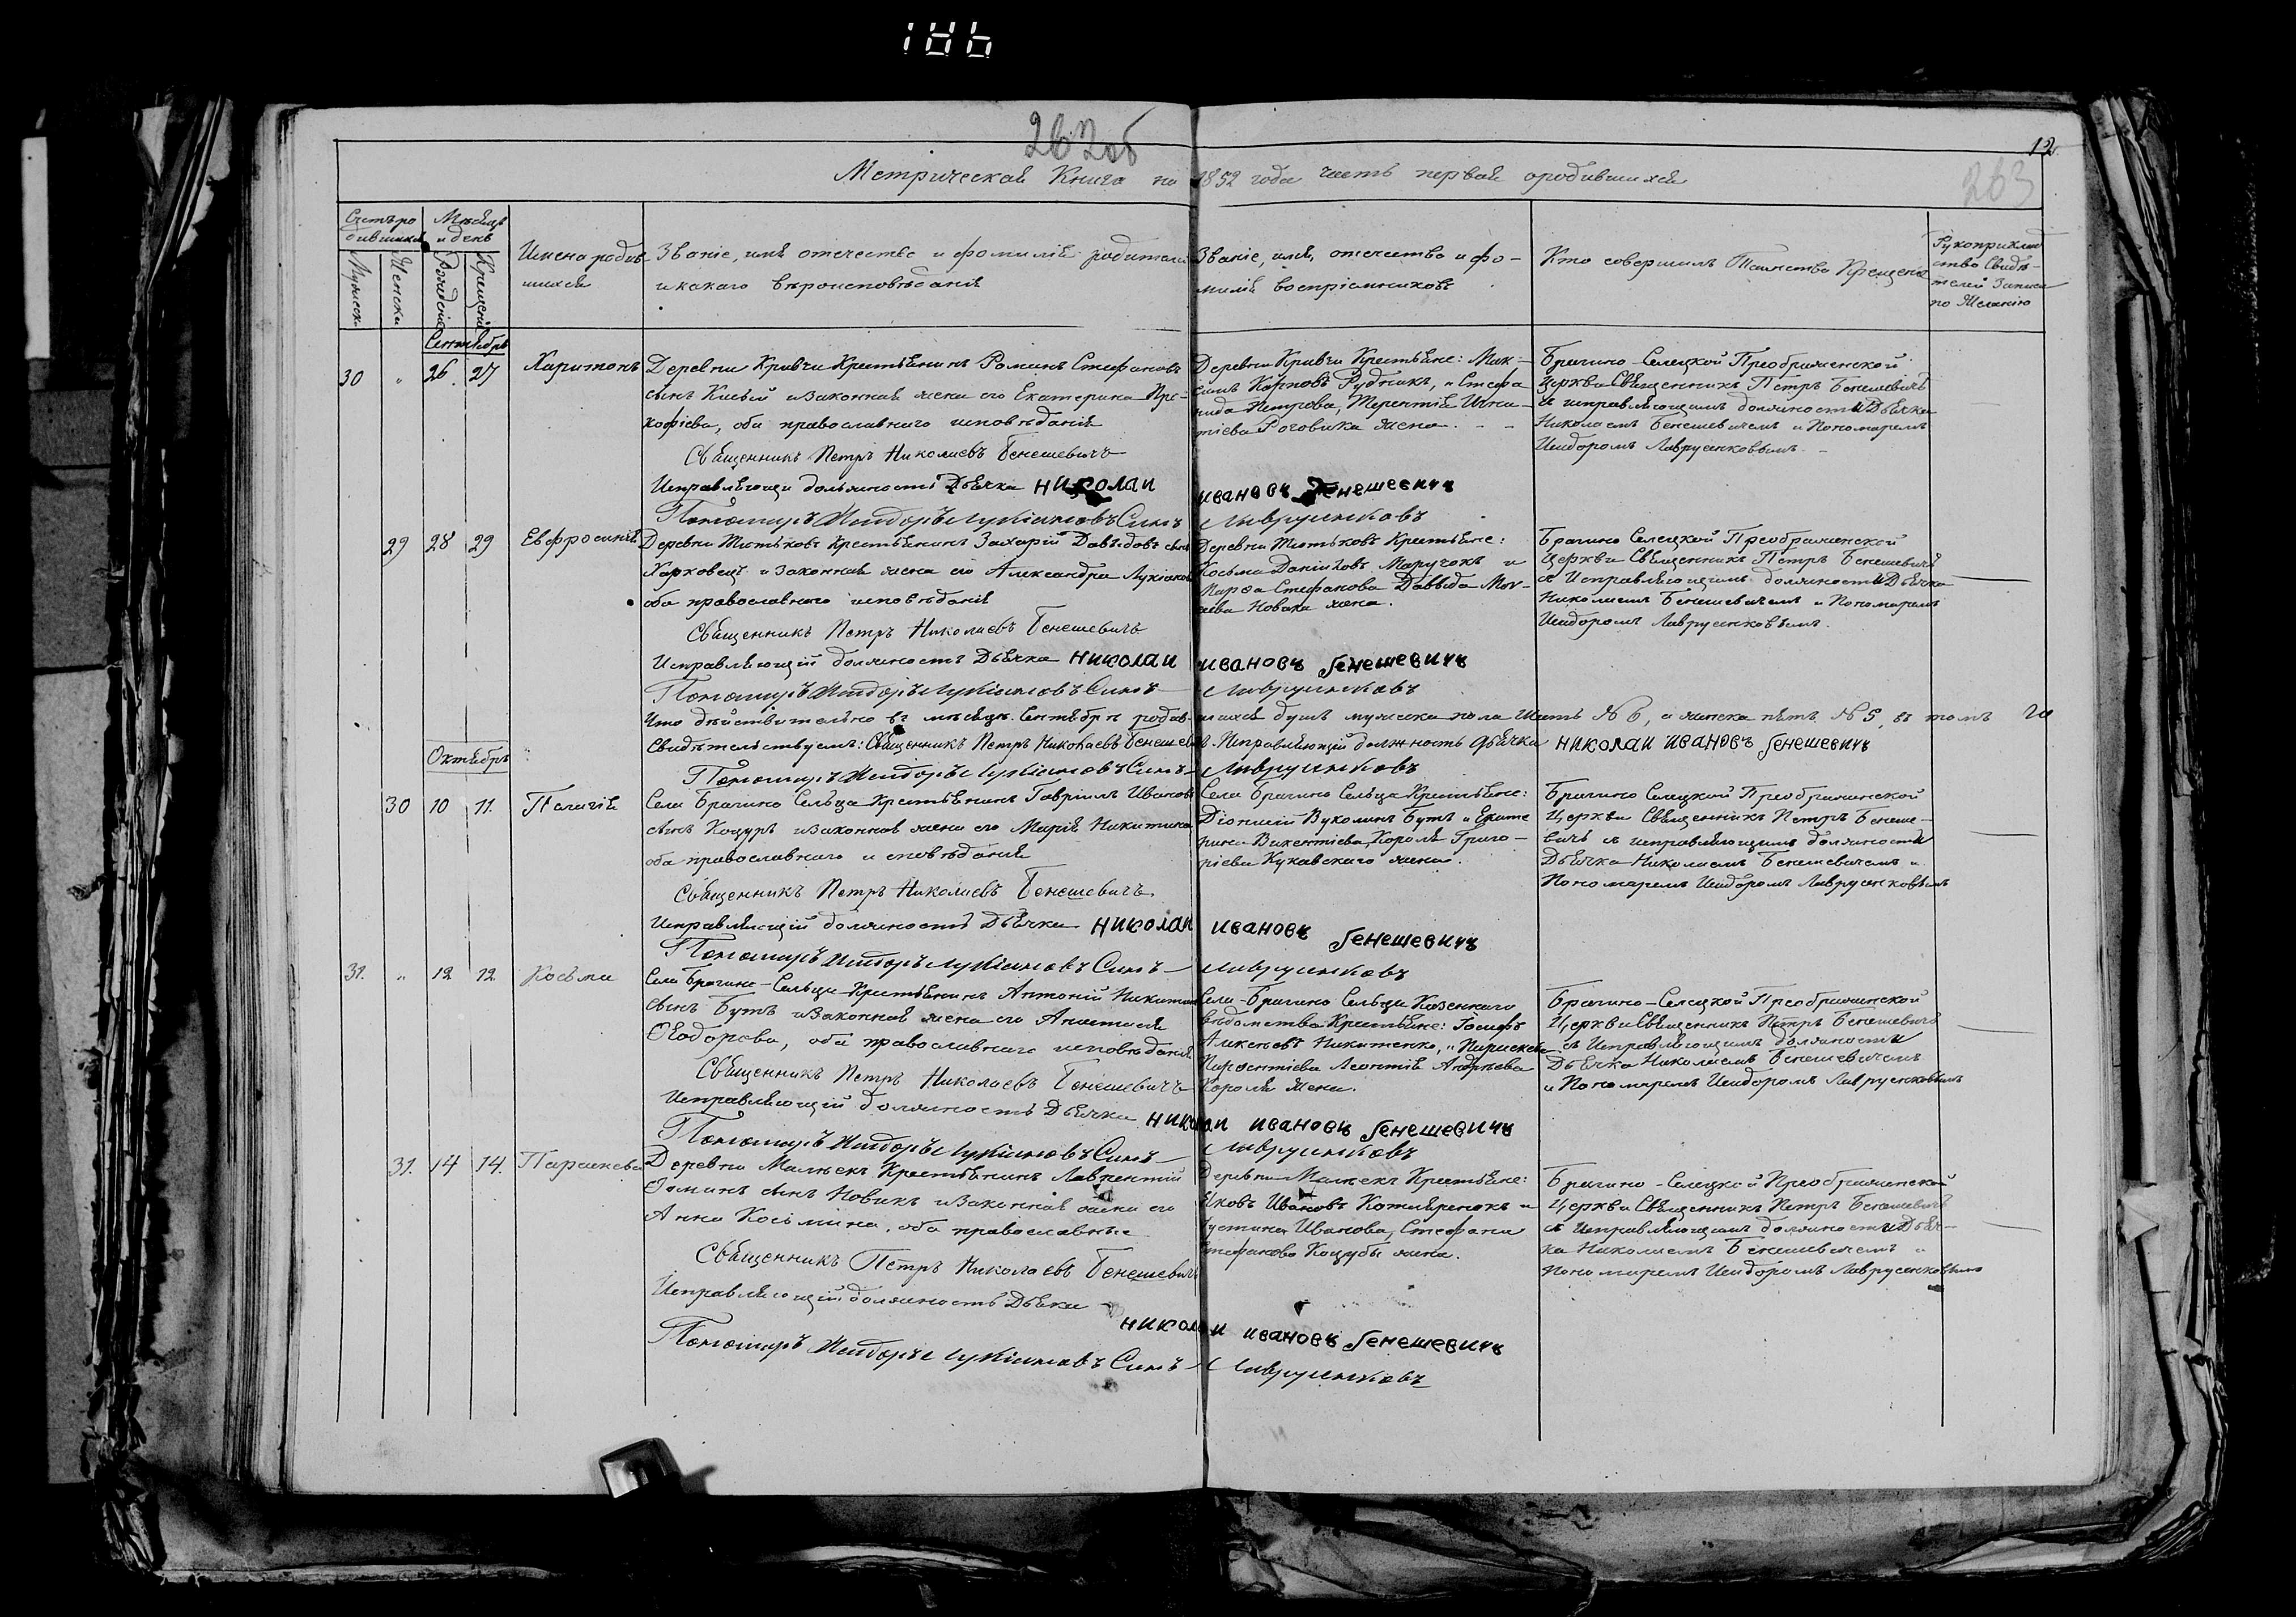 186
262об
12.
263
Метрической Книга на 1852 года часть первая ородившихся
Счетъ ро
дившихся
Мѣсяцъ
и день
Мужеска
Женска
Рожденія
Крещенія
Имена родив-
шихся
Званіе, имя отечество и фомилія родителей
и какаго вѣроисповѣданія
Званіе, имя, отечество и фо-
милія воспріемниковъ
Кто совершилъ Таинство Крещенія
Рукоприклад
ство Свидѣ-
телей Записи
по Желанію
Сентябрь
30 " 26. 27 Харитонъ
Деревни Кривчи Крестьянинъ Романъ Стефановъ
сынъ и законная жена его Екатерина Про-
кофіева, оба православнаго исповѣданія
Священникъ Петръ Николаевъ Бенешевичъ
Исправляющи должность Дьячка Николаи
Пономаръ Исидоръ Лукіяновъ Сынъ
Деревни Кривчи Крестьяне: Мак-
симъ Карповъ Рудникъ, и Стефа
нида Петрова, Терентія Игна-
тіева Роговика жена.
ивановъ Бенешевичъ
Лаврушковъ
Брагино-Селецкой Преображенской
Церкви Священникъ Петръ Бенешевичъ
съ исправляющимъ должность Дьячка
Николаемъ Бенешевичемъ и Пономаремъ
Исидоромъ Лавруенковымъ.
29 28 29 Евфросинія
Деревни Тютьковъ Крестьянинъ Захарій Давыдовъ сынъ
Харковецъ и законная жена его Александра Лукіянова
оба православнаго исповѣданія
Священникъ Петръ Николаевъ Бенешевичъ
Исправляющій должность Дьячка Николаи
Пономаръ Исидоръ Лукіяновъ Сынъ
Деревни Тютьковъ Крестьяне:
Косьма Даніиловъ Маручокъ и
Марфа Стефанова Давыда Мои-
сеева Новака жена.
ивановъ Бенешевичъ
Лаврушковъ
Брагино Селецкой Преображенской
Церкви Священникъ Петръ Бенешевичъ
съ Исправляющимъ должность Дьячка
Николаемъ Бенешевичемъ и Пономаремъ
Исидоромъ Лавруенковымъ.
Что дѣйствительно въ мѣсяцѣ Сентябрѣ родив-шихся душъ мужеска пола Шесть № 6, а женска пять № 5, въ томъ
Свидѣтельствуемъ: Священникъ Петръ Николаевъ Бенешевичъ. Исправляющій должность дьячка николаи ивановъ Бенешевичъ
Пономаръ Исидоръ Лукіяновъ Сынъ Лаврушковъ
Октябрь
30 10 11. Пелагія
Села Брагино Сельца Крестьянинъ Гавріилъ Ивановъ
сынъ Коцуръ и законная жена его Марія Никитина
оба православнаго исповѣданія
Священникъ Петръ Николаевъ Бенешевичъ
Исправляющій должность Дьячка Николаи
Пономаръ Исидоръ Лукіяновъ Сынъ
Села Брагино Сельца Крестьяне:
Діонисій Вуколинъ Бутъ и Екате
рина Викентіева, Короля Григо-
ріева Кукавскаго жена.
ивановъ Бенешевичъ
Лаврушковъ
Брагино Селецкой Преображенской
Церкви Священникъ Петръ Бенеше-
вичъ съ исправляющимъ должность
Дьячка Николаемъ Бенешевичемъ и
Пономаремъ Исидоромъ Лавруенковымъ
31. " 12 12 Косьма
Села Брагино-Сельца Крестьянинъ Антоній Никитинъ
сынъ Бутъ и законная жена его Анастасія
Ѳеодорова, оба православнаго исповѣданія
Священникъ Петръ Николаевъ Бенешевичъ
Исправляющій должность Дьячка Николаи
Пономаръ Исидоръ Лукіяновъ Сынъ
Села-Брагино Сельца Козеннаго
вѣдомства Крестьяне: Іосифъ
Алексѣевъ Никитенко, и Параскева
Парфентіева Леонтія Андрѣева
Короля жена.
ивановъ Бенешевичъ
Лаврушковъ
Брагино-Селецкой Преображенской
Церкви Священникъ Петръ Бенешевичъ
съ Исправляющимъ должность
Дьячка Николаемъ Бенешевичемъ
и Пономаремъ Исидоромъ Лавруенковымъ
31. 14 14. Параскева
Деревни Малѣекъ Крестьянинъ Лаврентій
Ѳоминъ сынъ Новикъ и законная жена его
Анна Косьмина, оба православные
Священникъ Петръ Николаевъ Бенешевичъ
Исправляющій должность Дьячка
Николаи ивановъ Бенешевичъ
Пономаръ Исидоръ Лукіяновъ Сынъ Лаврушковъ
Деревни Малѣекъ Крестьяне:
Яковъ Ивановъ и
Іустина Иванова, Стефана
Стефанова Коцубы жена.
Брагино-Селецкой Преображенской
Церкви Священникъ Петръ Бенешевичъ
съ Исправляющимъ должность Дьяч-
ка Николаемъ Бенешевичемъ и
Пономаремъ Исидоромъ Лавруенковымъ